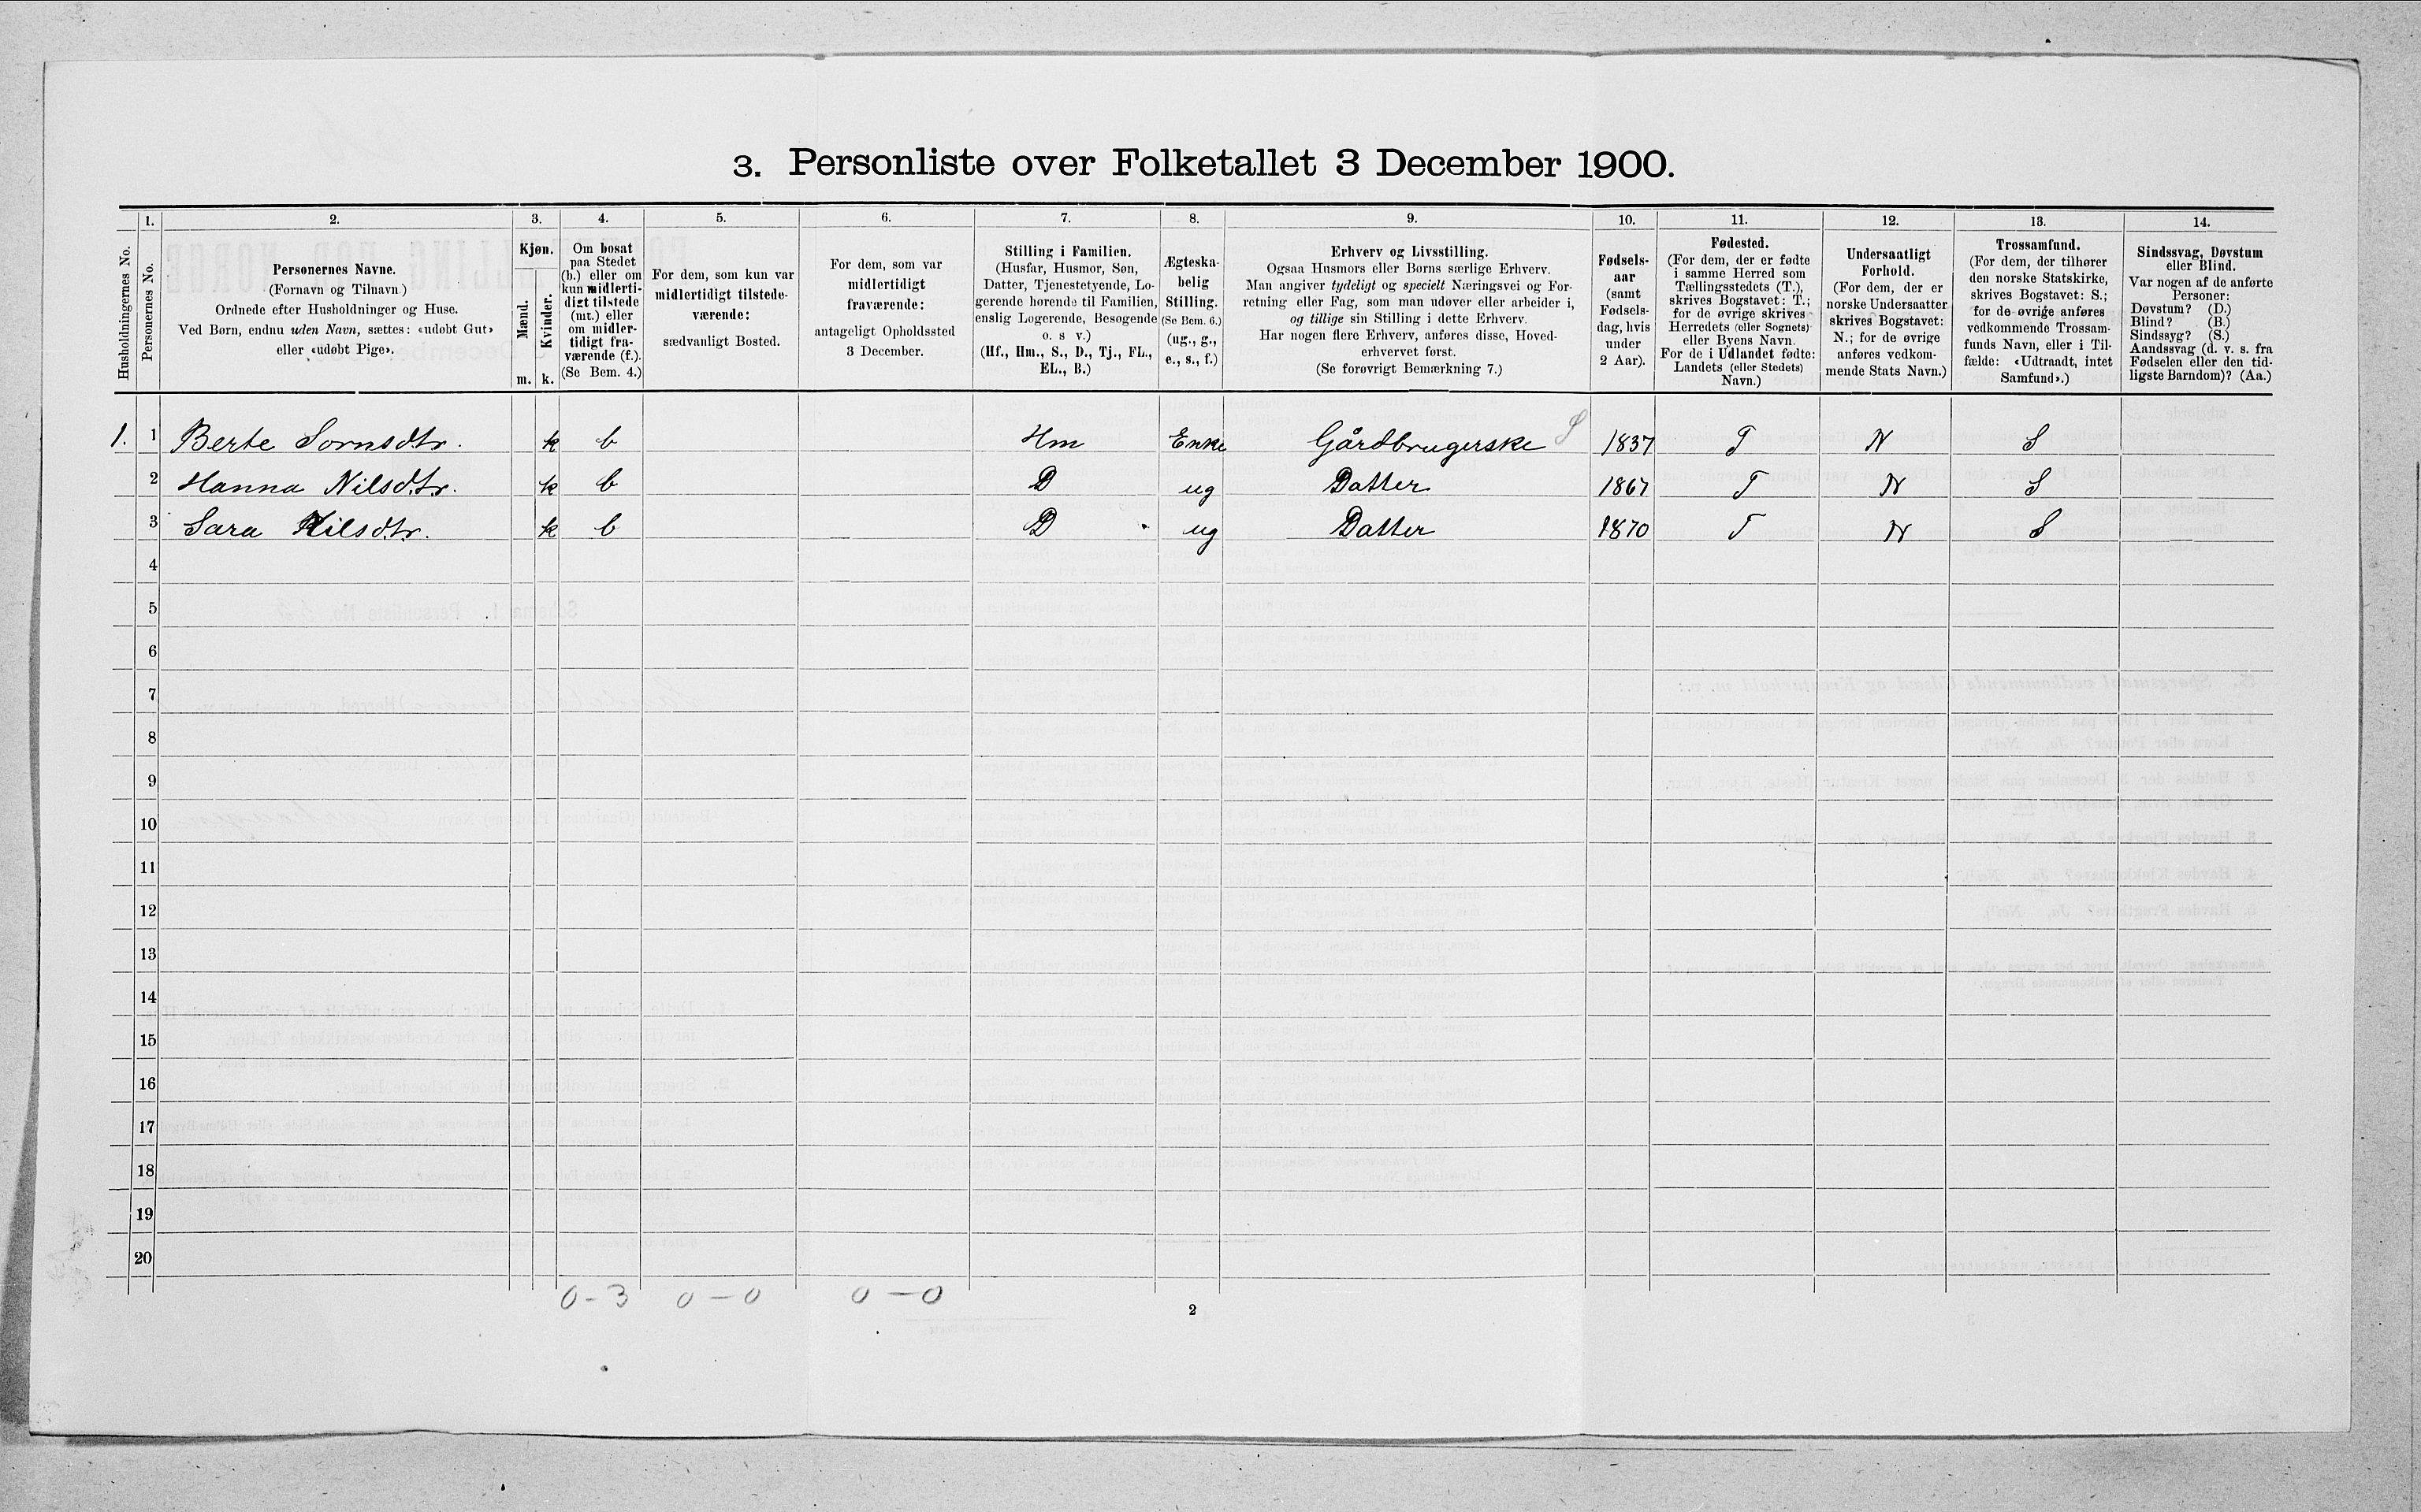 3. Personliste over Folketallet 3 December 1900.
Husholdningernes No.
1.
Personernes No.
2.
Personernes Navne.
(Fornavn og Tilnavn)
Ordnede efter Husholdninger og Huse.
Ved Børn, endnu uden Navn, sættes: «udøbt Gut»
eller «udøbt Pige».
3.
Kjøn.
Mænd.
Kvinder.
m. k.
4.
Om bosat
paa Stedet
(b.) eller om
kun midlerti-
digt tilstede
(mt.) eller
om midler-
tidigt fra-
værende (f.).
(Se Bem. 4.)
5.
For dem, som kun var
midlertidigt tilstede-
værende:
sædvanligt Bosted.
6.
For dem, som var
midlertidigt
fraværende:
antageligt Opholdssted
3 December.
7.
Stilling i Familien.
(Husfar, Husmor, Søn,
Datter, Tjenestetyende, Lo-
gerende hørende til Familien,
enslig Logerende, Besøgende
o. s v.)
(Hf., Hm., S., D., Tj., FL.,
EL., B.)
8.
Ægteska-
belig
Stilling.
(Se Bem. 6.)
(ug., g.,
e., s., f.)
9.
Erhverv og Livsstilling.
Ogsaa Husmors eller Børns særlige Erhverv.
Man angiver tydeligt og specielt Næringsvei og For-
retning eller Fag, som man udøver eller arbeider i,
og tillige sin Stilling i dette Erhverv.
Har nogen flere Erhverv, anføres disse, Hoved-
erhvervet først.
(Se forøvrigt Bemærkning 7.)
10.
Fødsels-
aar
(samt
Fødsels-
dag, hvis
under
2 Aar).
11.
Fødested.
(For dem, der er fødte
i samme Herred som
Tællingsstedets (T.),
skrives Bogstavet: T.;
for de øvrige skrives
Herredets (eller Sognets)
eller Byens Navn.
For de i Udlandet fødte:
Landets (eller Stedets)
Navn.)
12.
Undersaatligt
Forhold.
(For dem, der er
norske Undersaatter
skrives Bogstavet:
N.; for de øvrige
anføres vedkom-
mende Stats Navn.)
13.
Trossamfund.
(For dem, der tilhører
den norske Statskirke,
skrives Bogstavet: S.;
for de øvrige anføres
vedkommende Trossam-
funds Navn, eller i Til-
fælde: «Udtraadt, intet
Samfund».)
14.
Sindssvag, Døvstum
eller Blind.
Var nogen af de anførte
Personer:
Døvstum? (D.)
Blind? (B.)
Sindssyg? (S.)
Aandssvag (d. v. s. fra
Fødselen eller den tid-
ligste Barndom)? (Aa.)
1. 1 Berte Sornsdtr. k b Hm Enke Gårdbrugerske S 1837 T N S
2 Hanna Nilsdtr. k b D ug Datter 1867 T N S
3 Sara Nilsdtr. k b D ug Datter 1870 T N S
4
5
6
7
8
9
10
11
12
13
14
15
16
17
18
19
20
0-3 0-0 0-0
2